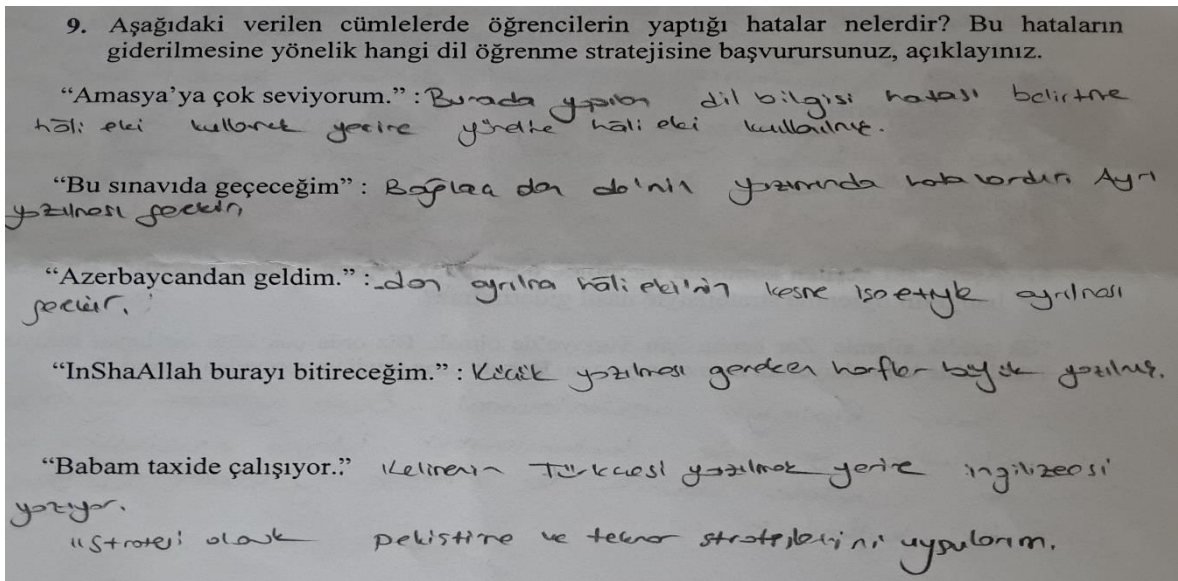 9. Aşağıdaki verilen cümlelerde öğrencilerin yaptığı hatalar nelerdir? Bu hataların
giderilmesine yönelik hangi dil öğrenme stratejisine başvurursunuz, açıklayınız.
“Amasya’ya çok seviyorum.” : Burada yapılan dil bilgisi hatası belirtme
hâli eki kullanmak yerine yönelme hâli eki kullanılmış.
“Bu sınavıda geçeceğim” : Bağlaç olan de'nin yazımında hata vardır. Ayrı
yazılması gerekir.
“Azerbaycandan geldim.” : -dan ayrılma hâli eki'nin kesme işaretiyle ayrılması
gerekir.
“InShaAllah burayı bitireceğim.” : Küçük yazılması gereken harfler büyük yazılmış.
“Babam taxide çalışıyor.” Kelimenin Türkçesi yazılmak yerine ingilizcesi
yazıyor.
"Strateji olarak pekiştirme ve tekrar stratejilerini uygularım.